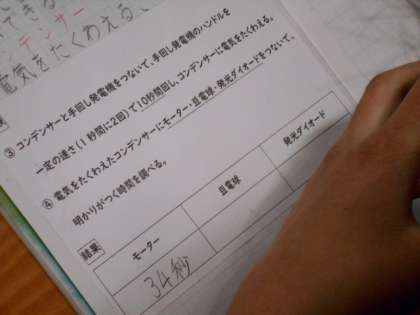 できる
デンサー
電気をたくわえる、
③ コンデンサーと手回し発電機をつないで、手回し発電機のハンドルを
一定の速さ(1秒間に2回)で10秒間回し、コンデンサーに電気をたくわえる。
④ 電気をたくわえたコンデンサーにモーター・豆電球・発光ダイオードをつないで、
明かりがつく時間を調べる。
結果
モーター
豆電球
発光ダイオード
34秒